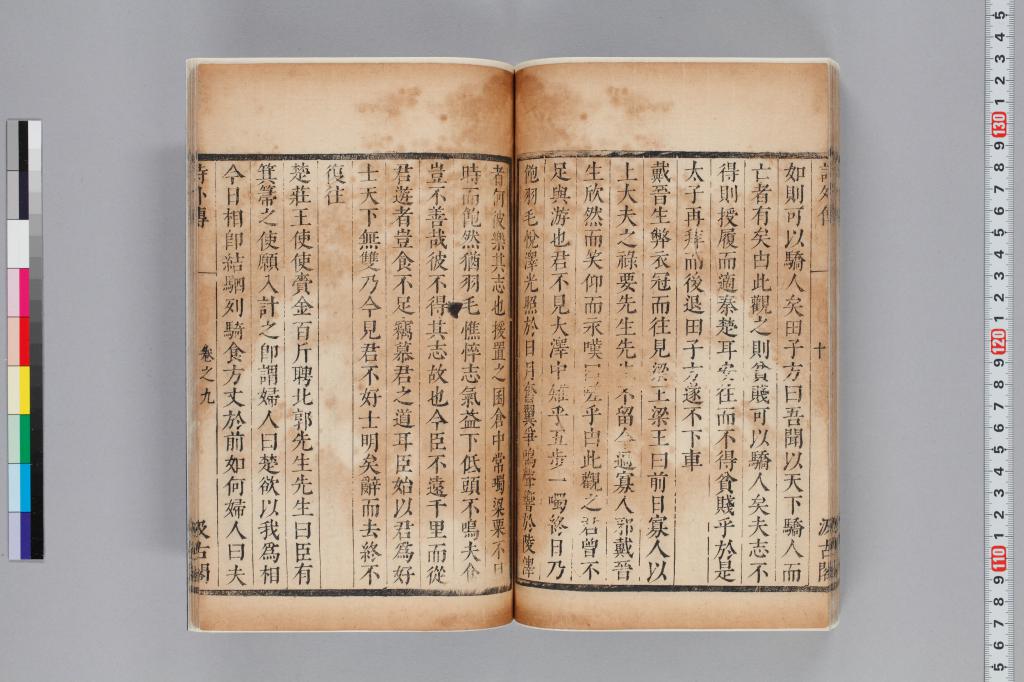 詩外傳 十 汲古閣
如則可以驕人矣田子方曰吾聞以天下驕人而
亡者有矣由此觀之則貧賤可以驕人矣夫志不
得則授履而適秦楚耳安往而不得貧賤乎於是
太子再拜而後退田子方遂不下車
戴晉生弊衣冠而往見梁王梁王曰前日寡人以
上大夫之祿要先生先生不留今過寡人邪戴晉
生欣然而笑仰而永嘆曰嗟乎由此觀之君曾不
足與游也君不見大澤中雉乎五步一噣終日乃
飽羽毛悅澤光照於日月奮翼爭鳴聲響於陵澤
者何彼樂其志也援置之囷倉中常噣粱粟不旦
時而飽然猶羽毛憔悴志氣益下低頭不鳴夫食
豈不善哉彼不得其志故也今臣不遠千里而從
君遊者豈食不足竊慕君之道耳臣始以君爲好
士天下無雙乃今見君不好士明矣辭而去終不
復往
楚莊王使使賫金百斤聘北郭先生先生曰臣有
箕箒之使願入計之卽謂婦人曰楚欲以我爲相
今日相卽結駟列騎食方丈於前如何婦人曰夫
詩外傳 卷之九 汲古閣